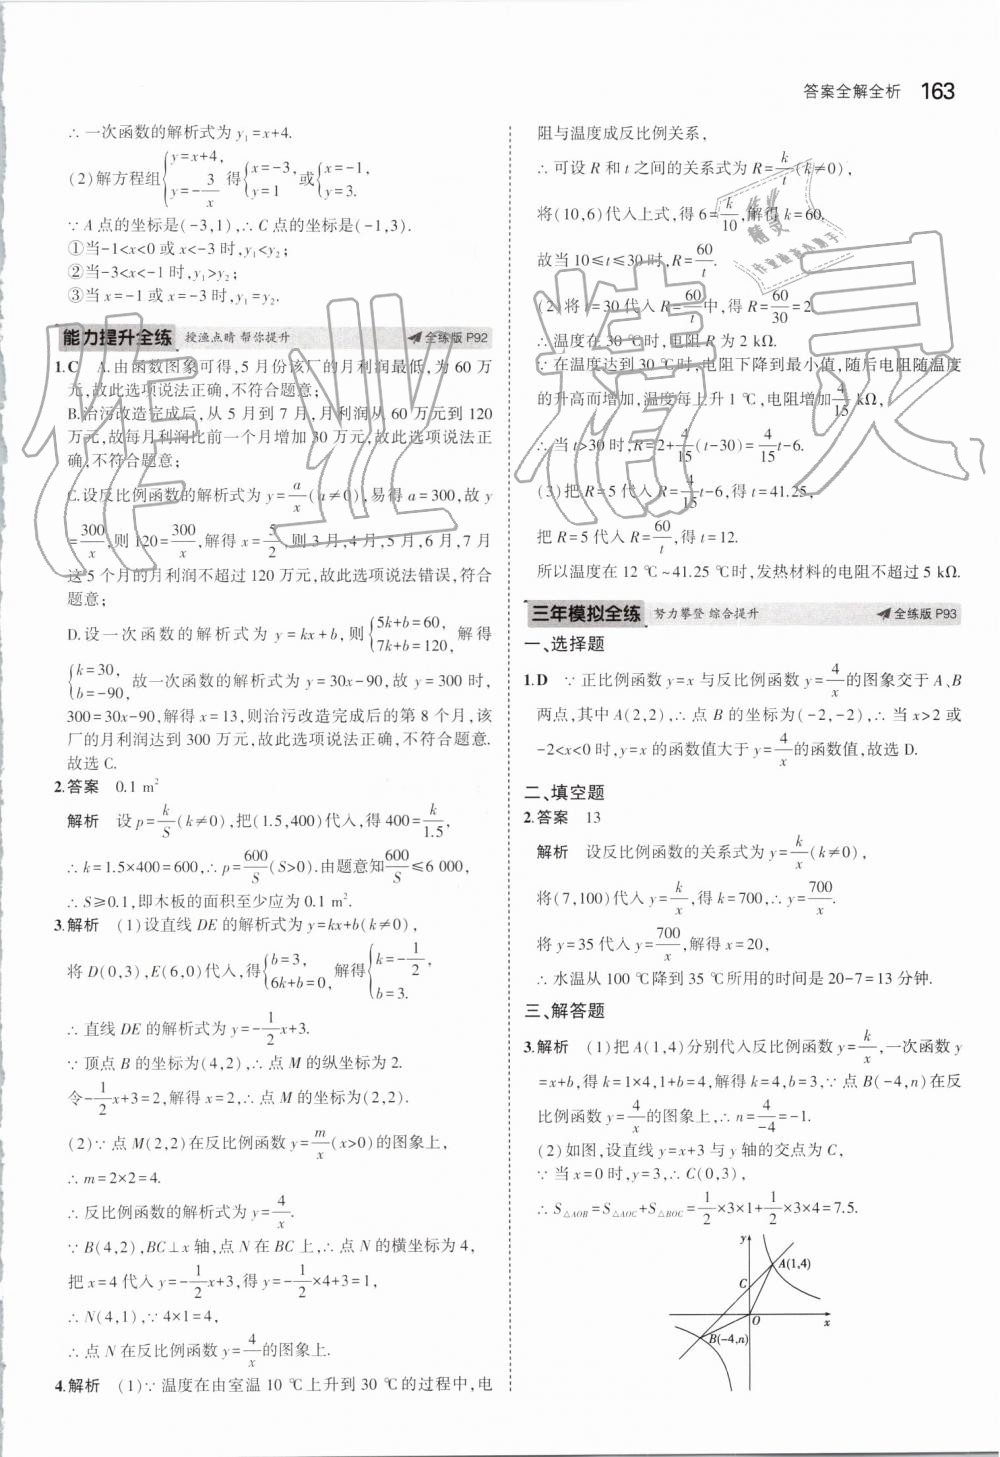 答案全解全析 163
∴一次函数的解析式为 y₁=x+4.
(2)解方程组{y=x+4, y=-3/x 得{x=-3, y=1 或{x=-1, y=3.
∵A 点的坐标是(-3,1),∴C 点的坐标是(-1,3).
①当-1<x<0 或 x<-3 时,y₁<y₂;
②当-3<x<-1 时,y₁>y₂;
③当 x=-1 或 x=-3 时,y₁=y₂.
能力提升全练 授渔点睛 帮你提升 全练版 P92
1.C A.由函数图象可得,5 月份该厂的月利润最低,为 60 万
元,故此选项说法正确,不符合题意;
B.治污改造完成后,从 5 月到 7 月,月利润从 60 万元到 120
万元,故每月利润比前一个月增加 30 万元,故此选项说法正
确,不符合题意;
C.设反比例函数的解析式为 y=a/x(a≠0),易得 a=300,故 y
=300/x,则 120=300/x,解得 x=5/2,则 3 月,4 月,5 月,6 月,7 月
这 5 个月的月利润不超过 120 万元,故此选项说法错误,符合
题意;
D.设一次函数的解析式为 y=kx+b,则{5k+b=60, 7k+b=120, 解得
{k=30, b=-90, 故一次函数的解析式为 y=30x-90,故 y=300 时,
300=30x-90,解得 x=13,则治污改造完成后的第 8 个月,该
厂的月利润达到 300 万元,故此选项说法正确,不符合题意.
故选 C.
2.答案 0.1 m²
解析 设 p=k/S(k≠0),把(1.5,400)代入,得 400=k/1.5,
∴k=1.5×400=600,∴p=600/S(S>0).由题意知600/S≤6 000,
∴S≥0.1,即木板的面积至少应为 0.1 m².
3.解析 (1)设直线 DE 的解析式为 y=kx+b(k≠0),
将 D(0,3),E(6,0)代入,得{b=3, 6k+b=0, 解得{k=-1/2, b=3.
∴直线 DE 的解析式为 y=-1/2x+3.
∵顶点 B 的坐标为(4,2),∴点 M 的纵坐标为 2.
令-1/2x+3=2,解得 x=2,∴点 M 的坐标为(2,2).
(2)∵点 M(2,2)在反比例函数 y=m/x(x>0)的图象上,
∴m=2×2=4.
∴反比例函数的解析式为 y=4/x.
∵B(4,2),BC⊥x 轴,点 N 在 BC 上,∴点 N 的横坐标为 4,
把 x=4 代入 y=-1/2x+3,得 y=-1/2×4+3=1,
∴N(4,1),∵4×1=4,
∴点 N 在反比例函数 y=4/x的图象上.
4.解析 (1)∵温度在由室温 10 ℃上升到 30 ℃的过程中,电
阻与温度成反比例关系,
∴可设 R 和 t 之间的关系式为 R=k/t(k≠0),
将(10,6)代入上式,得 6=k/10,解得 k=60.
故当 10≤t≤30 时,R=60/t.
(2)将 t=30 代入 R=60/t中,得 R=60/30=2.
∴温度在 30 ℃时,电阻 R 为 2 kΩ.
∵在温度达到 30 ℃时,电阻下降到最小值,随后电阻随温度
的升高而增加,温度每上升 1 ℃,电阻增加4/15 kΩ,
∴当 t>30 时,R=2+4/15(t-30)=4/15t-6.
(3)把 R=5 代入 R=4/15t-6,得 t=41.25,
把 R=5 代入 R=60/t,得 t=12.
所以温度在 12 ℃~41.25 ℃时,发热材料的电阻不超过 5 kΩ.
三年模拟全练 努力攀登 综合提升 全练版 P93
一、选择题
1.D ∵正比例函数 y=x 与反比例函数 y=4/x的图象交于 A、B
两点,其中 A(2,2),∴点 B 的坐标为(-2,-2),∴当 x>2 或
-2<x<0 时,y=x 的函数值大于 y=4/x的函数值,故选 D.
二、填空题
2.答案 13
解析 设反比例函数的关系式为 y=k/x(k≠0),
将(7,100)代入 y=k/x,得 k=700,∴y=700/x.
将 y=35 代入 y=700/x,解得 x=20,
∴水温从 100 ℃降到 35 ℃所用的时间是 20-7=13 分钟.
三、解答题
3.解析 (1)把 A(1,4)分别代入反比例函数 y=k/x,一次函数 y
=x+b,得 k=1×4,1+b=4,解得 k=4,b=3,∵点 B(-4,n)在反
比例函数 y=4/x的图象上,∴n=4/-4=-1.
(2)如图,设直线 y=x+3 与 y 轴的交点为 C,
∵当 x=0 时,y=3,∴C(0,3),
∴S△AOB=S△AOC+S△BOC=1/2×3×1+1/2×3×4=7.5.
y
A(1,4)
C
O
x
B(-4,n)
作业精灵
作业
精灵